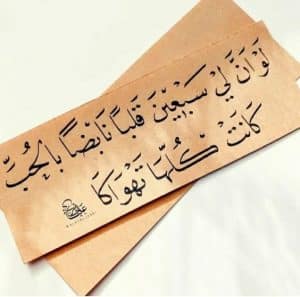 لَوْ اَنَّ لِيْ سَبْعِيْنَ قَلْبًا نَابِضًا بِالْحُبِّ
كَانَتْ كُلُّهَا تَهْوَاكَا